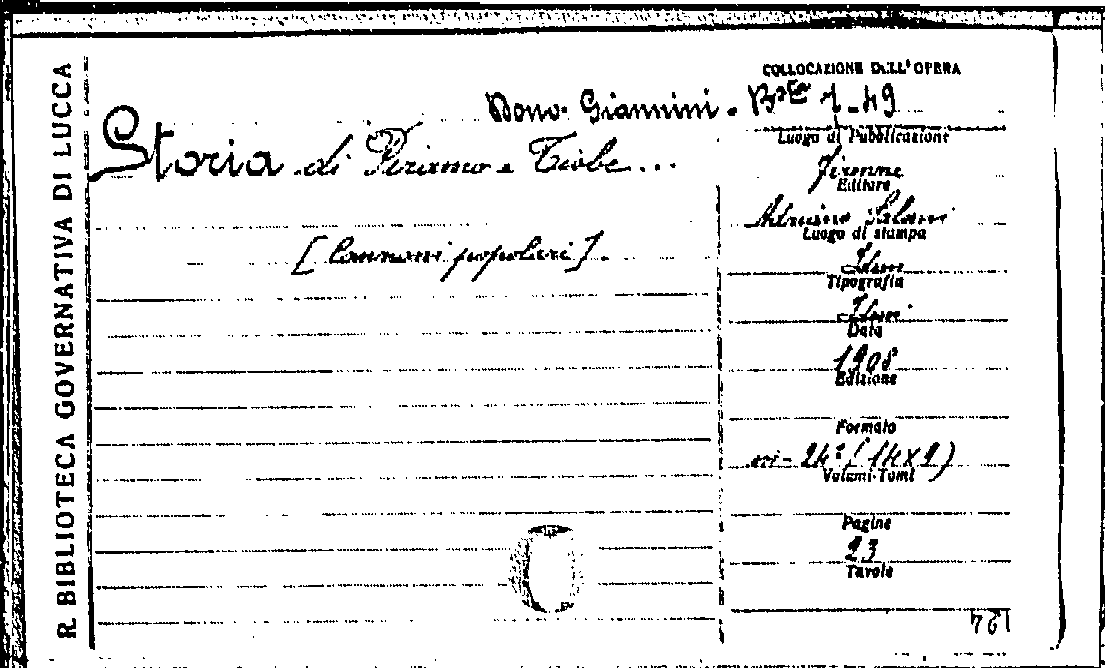 R. BIBLIOTECA GOVERNATIVA DI LUCCA
COLLOCAZIONE DELL'OPERA
Dono. Giannini. 1-49
Storia di Piramo e Tisbe...
[Canzoni popolari].
Luogo di Pubblicazione
Firenze
Editore
Adriano Salani
Luogo di stampa
Idem
Tipografia
Idem
Data
1908
Edizione
Formato
24° (14x9)
Volumi-Tomi
Pagine
23
Tavole